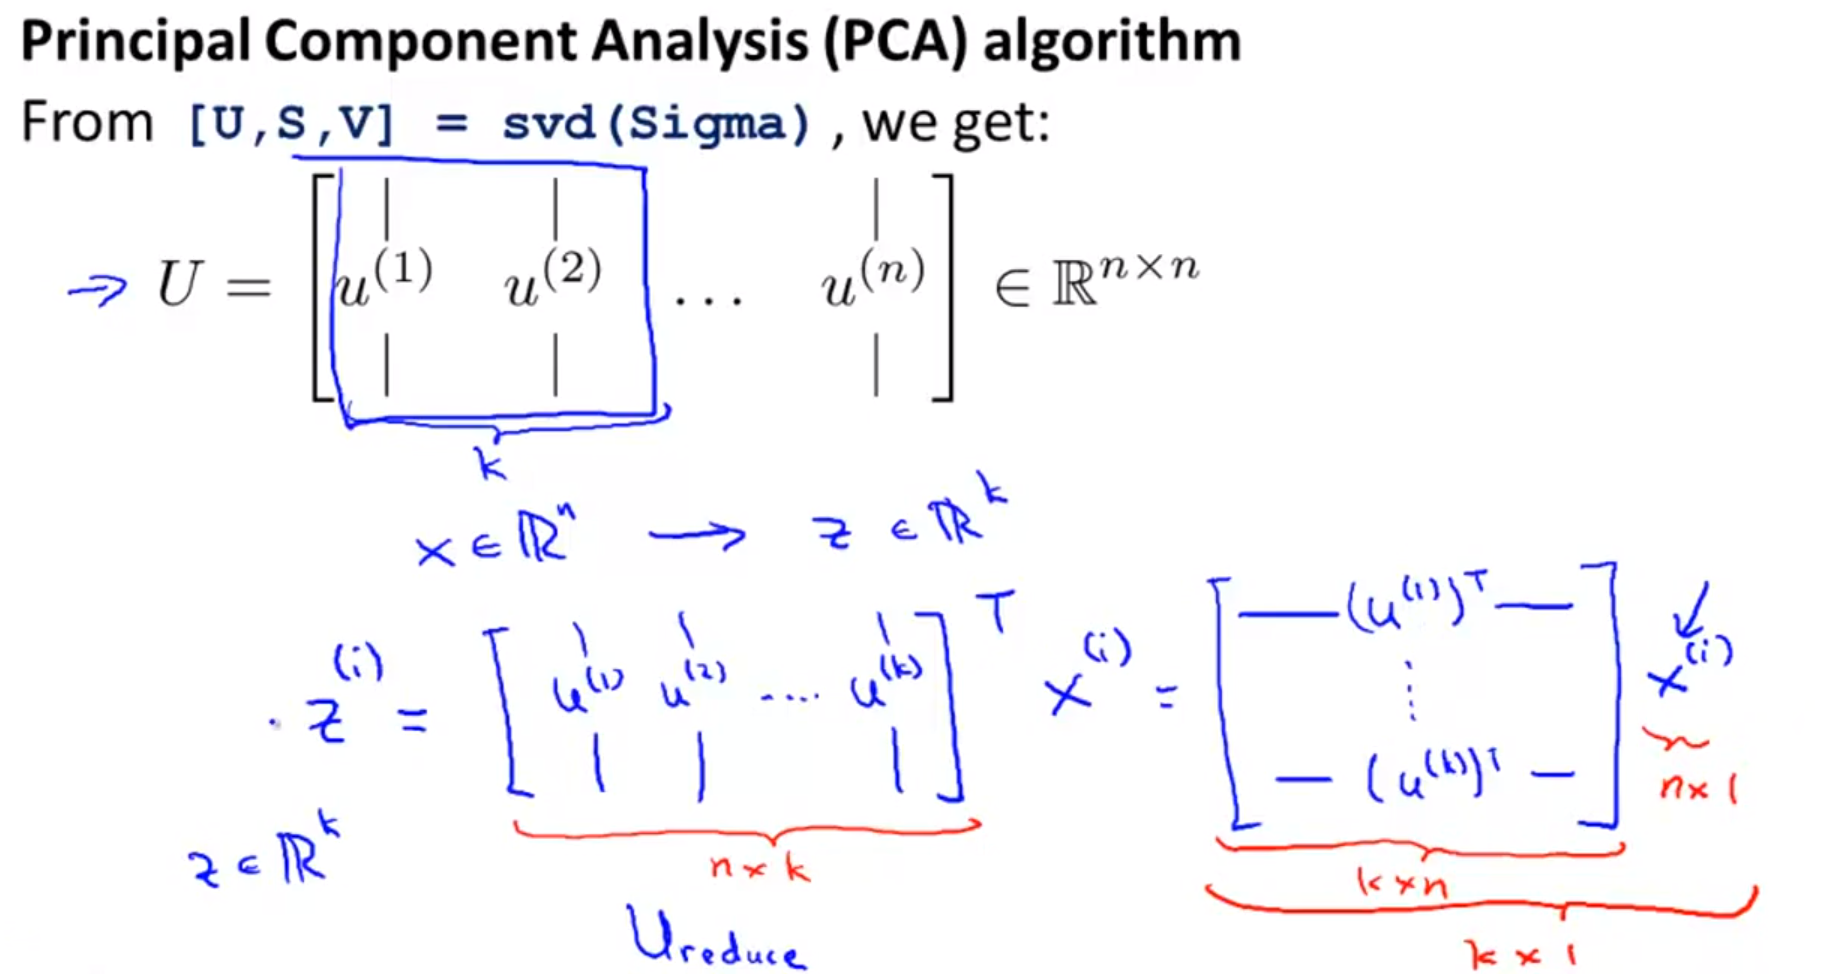 Principal Component Analysis (PCA) algorithm
From [U,S,V] = svd(Sigma) , we get:
⇒ U = [ u^(1) u^(2) ... u^(n) ] ∈ ℝ^{n×n}
k
x ∈ ℝ^n → z ∈ ℝ^k
z^(i) = [ u^(1) u^(2) .... u^(k) ]^T x^(i) = [ — (u^(1))^T — ⋮ — (u^(k))^T — ] x^(i)
z ∈ ℝ^k
n × k
k × n
n × 1
U_reduce
k × 1